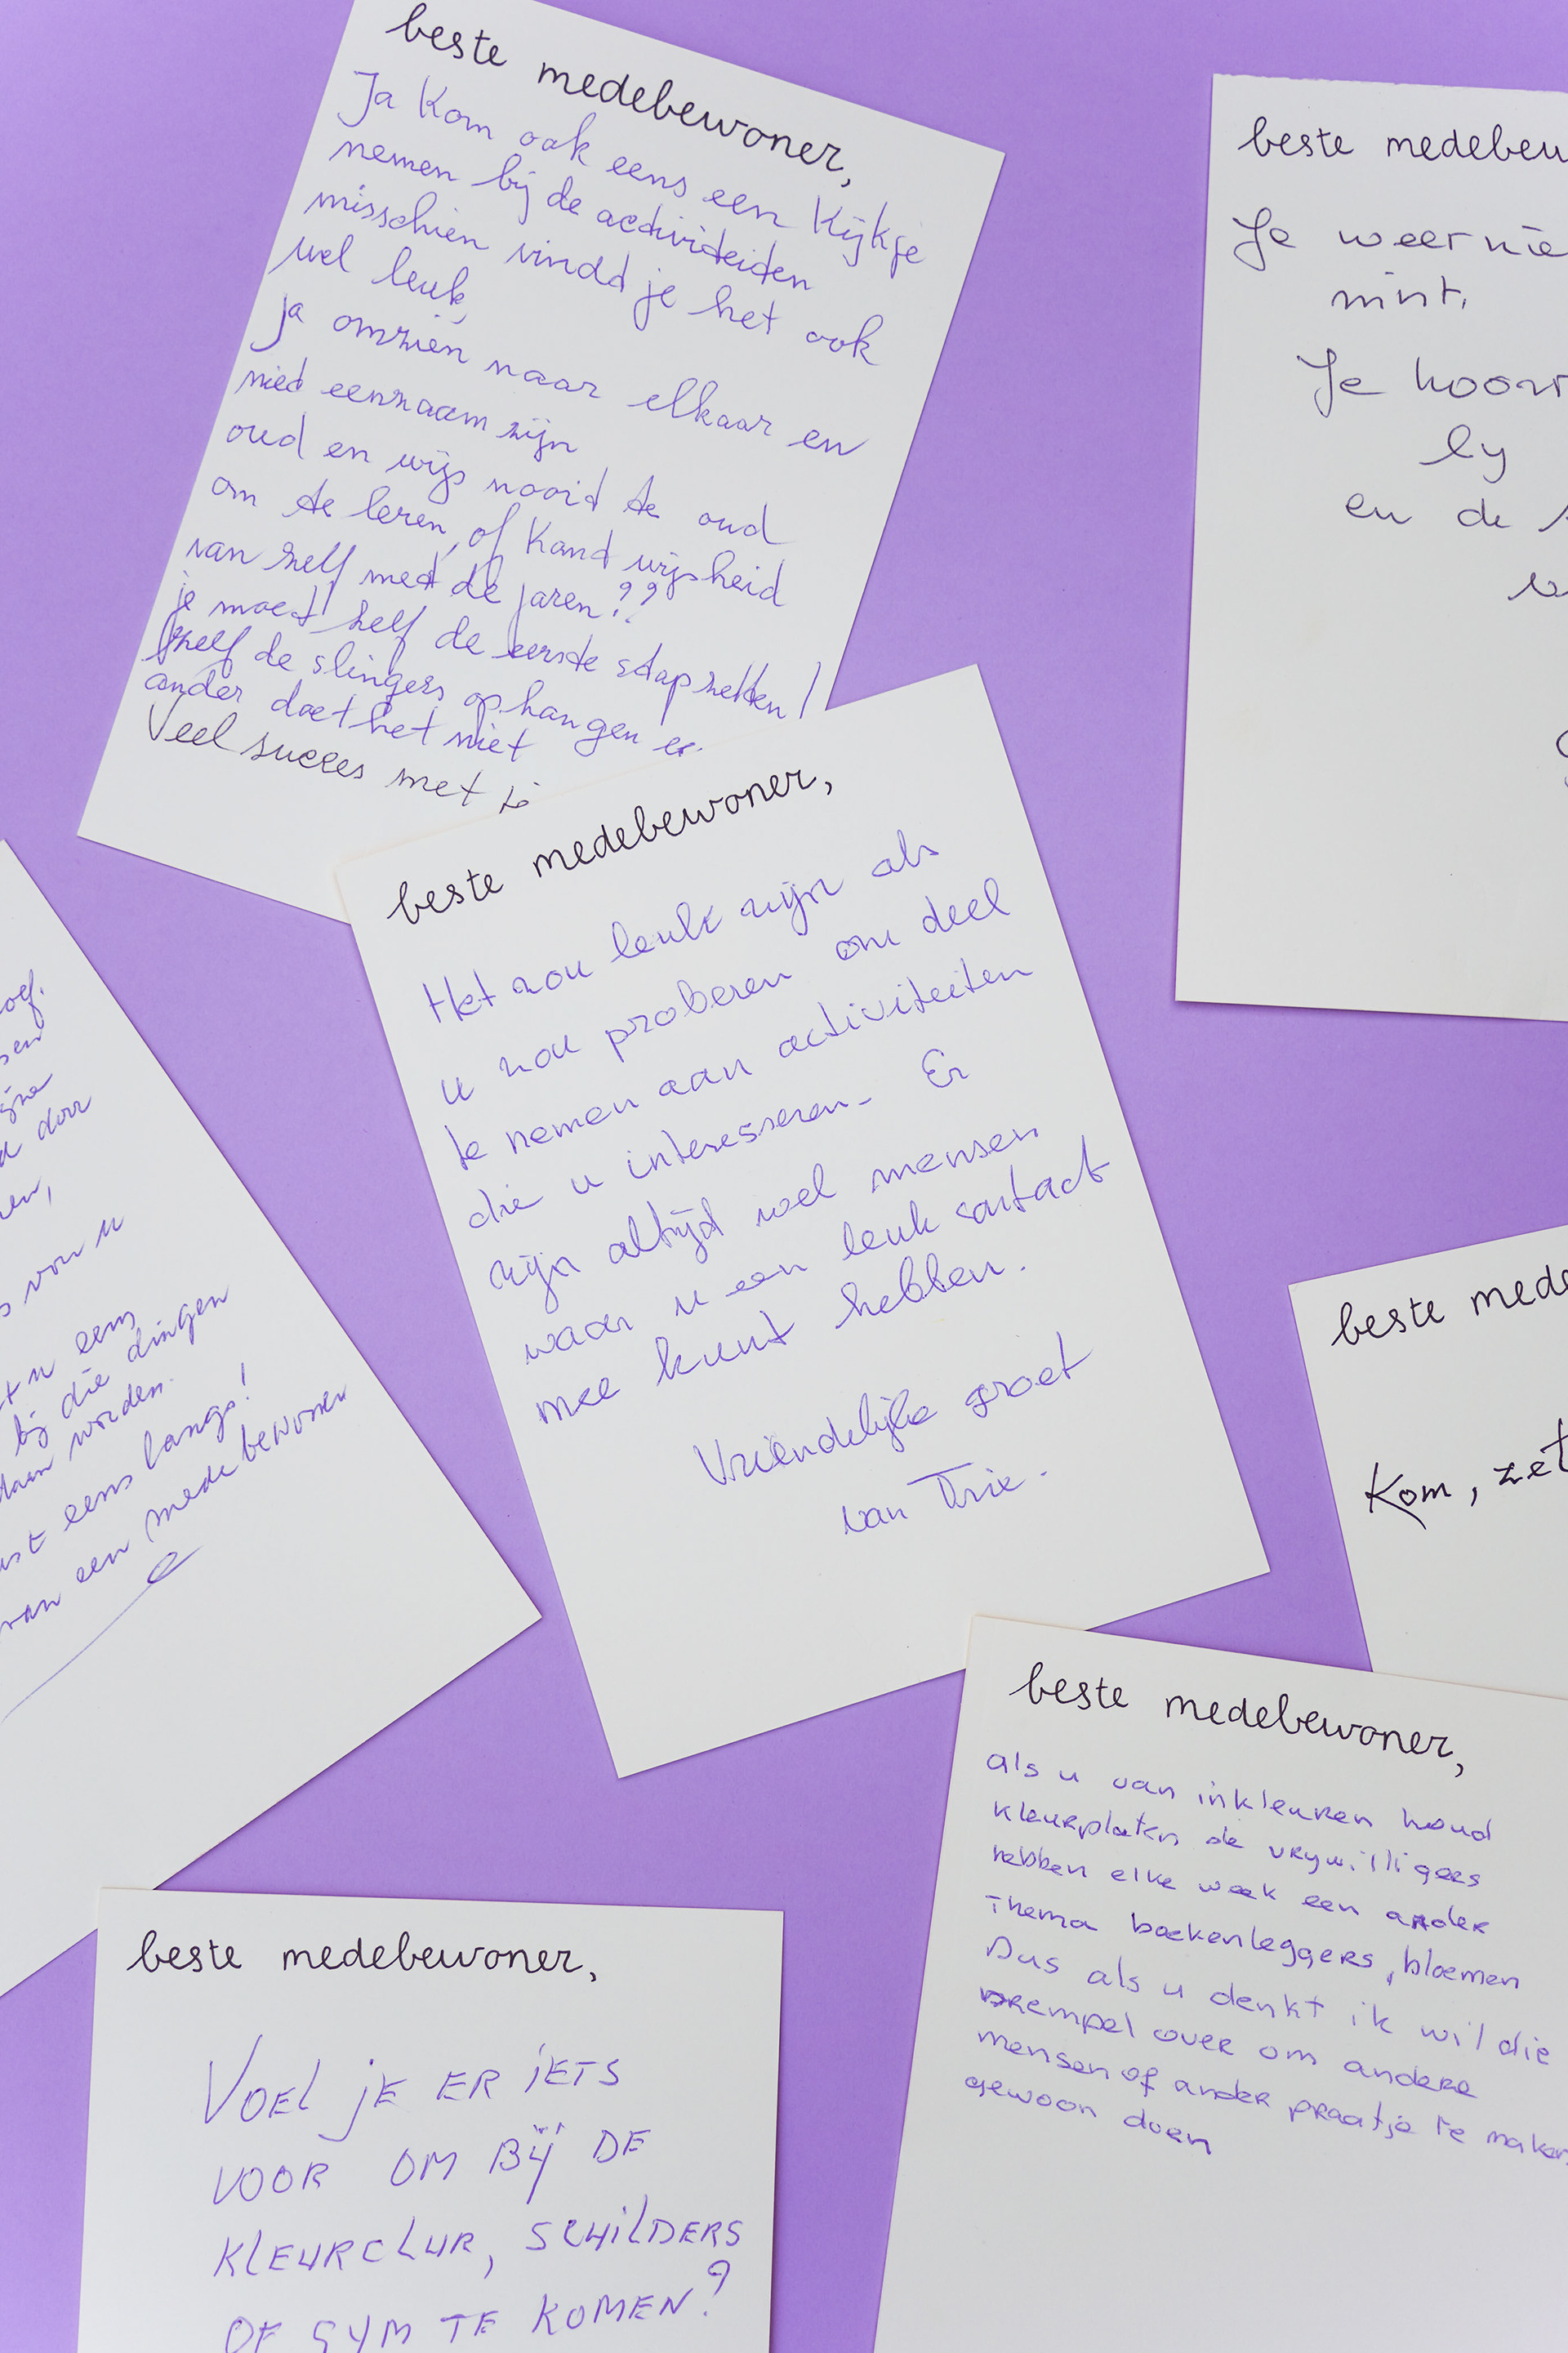 beste medebewoner,
Ja kom ook eens een kijkje
nemen bij de activideiden
misschien vindd je het ook
wel leuk,
ja omzien naar elkaar en
nied eenzaam zijn
oud en wijs nooid te oud
om te leren, of kand wijsheid
van zelf med de jaren??
je moet zelf de eerste stap zetten!
zelf de slingers ophangen
ander doet het niet
Veel succes met je
beste medebew
Je weer nie
mint.
Je hoor
by
en de
beste medebewoner,
Het zou leuk zijn als
u zou proberen om deel
te nemen aan activiteiten
die u interesseren. Er
zijn altijd wel mensen
waar u een leuk contact
mee kunt hebben.
Vriendelijke groet
van Trie.
door
van u
u eens
bij die dingen
worden.
eens langs!
van een medebewoner
beste mede
Kom, zet
beste medebewoner,
als u van inkleuren houd
kleurplaten de vrywilligers
hebben elke week een ander
Thema boekenleggers, bloemen
Dus als u denkt ik wil die
drempel over om andere
mensen of ander praatje te maken
gewoon doen
beste medebewoner,
VOEL JE ER IETS
VOOR OM BIJ DE
KLEURCLUR, SCHILDERS
OF GYM TE KOMEN?